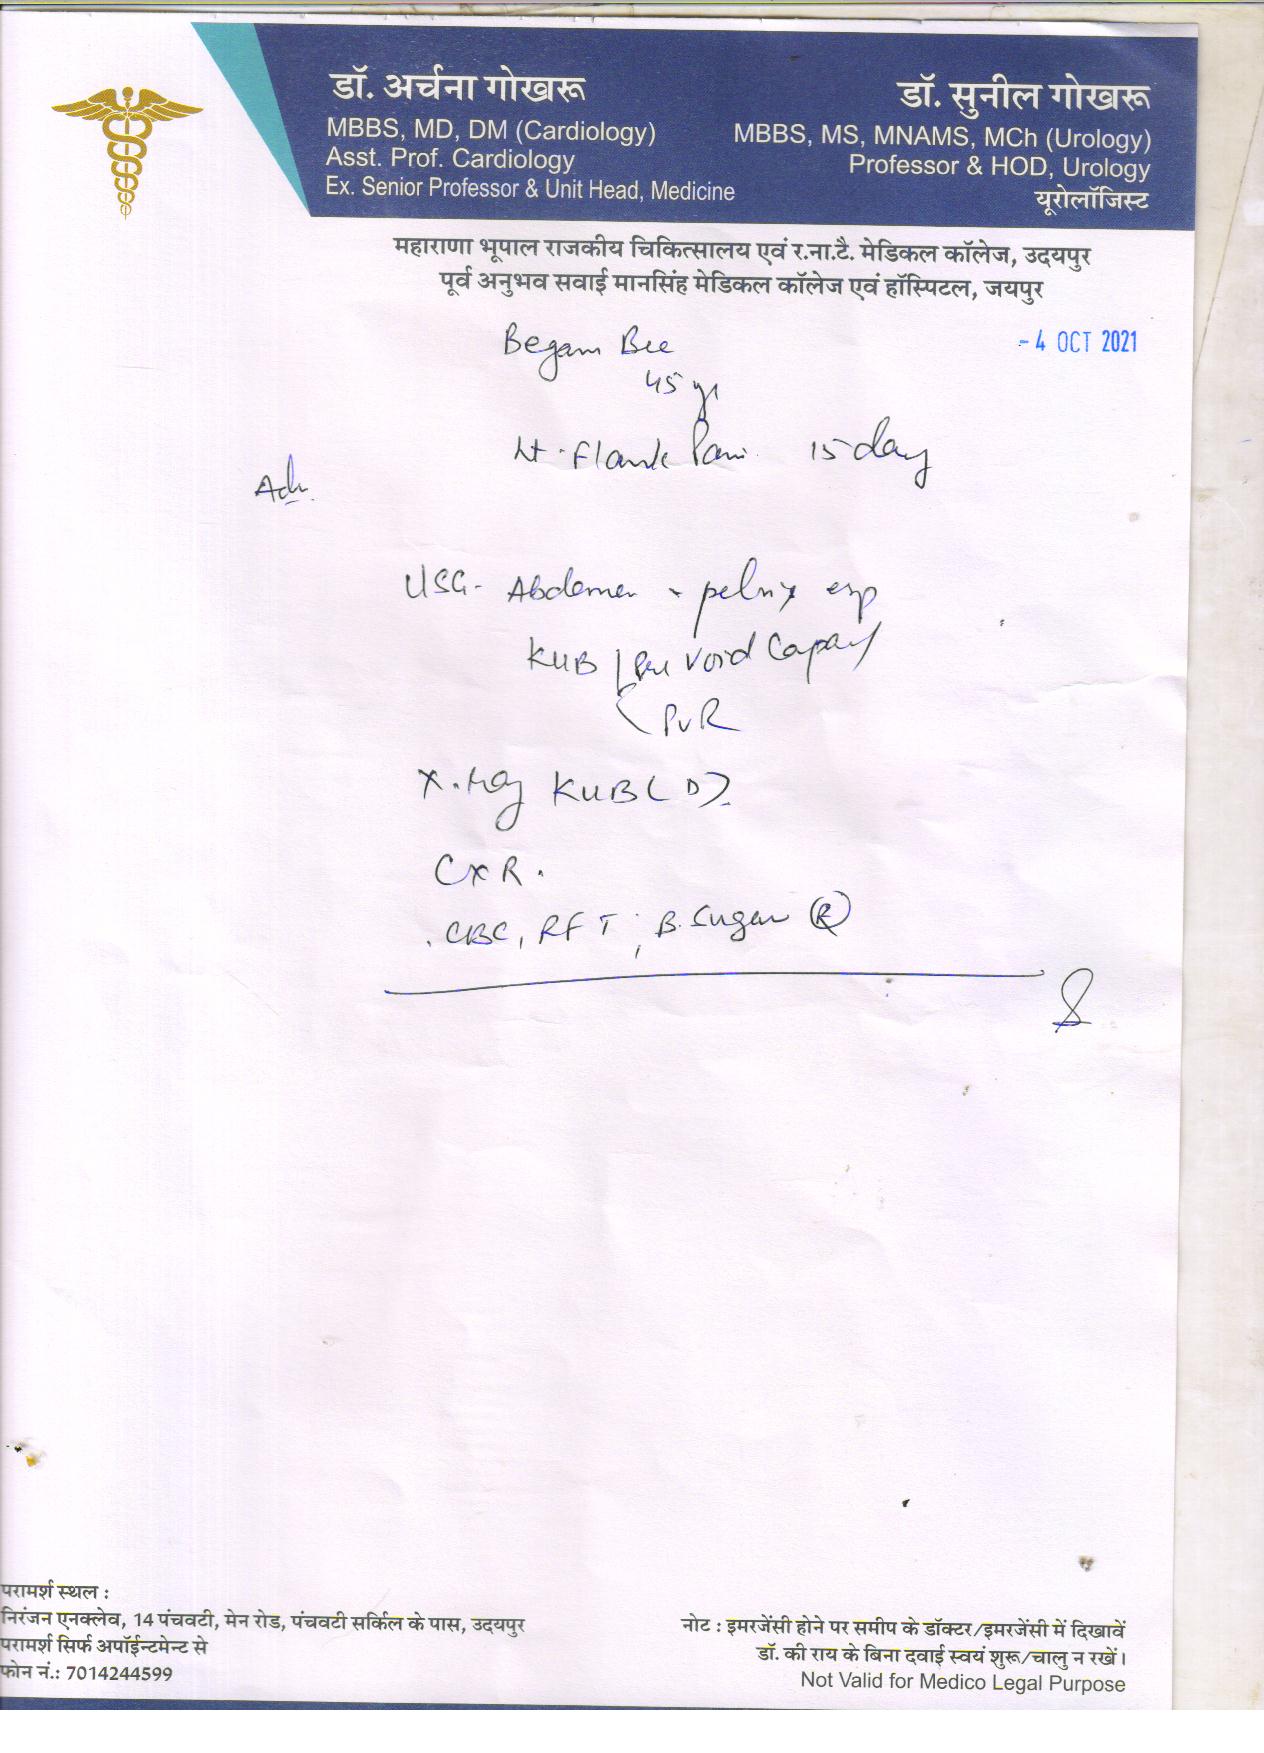 डॉ. अर्चना गोखरू
MBBS, MD, DM (Cardiology)
Asst. Prof. Cardiology
Ex. Senior Professor & Unit Head, Medicine
डॉ. सुनील गोखरू
MBBS, MS, MNAMS, MCh (Urology)
Professor & HOD, Urology
यूरोलॉजिस्ट
महाराणा भूपाल राजकीय चिकित्सालय एवं र.ना.टै. मेडिकल कॉलेज, उदयपुर
पूर्व अनुभव सवाई मानसिंह मेडिकल कॉलेज एवं हॉस्पिटल, जयपुर
- 4 OCT 2021
Begam Bee
45 yr
Flank Pain 15 day
Adv.
USG- Abdomen pelvis
KUB Pre Void Capacity
PVR
X.ray KUB (D)
CXR.
CBC, RFT, B. Sugar (R)
परामर्श स्थल :
निरंजन एनक्लेव, 14 पंचवटी, मेन रोड, पंचवटी सर्किल के पास, उदयपुर
परामर्श सिर्फ अपॉईन्टमेन्ट से
फोन नं.: 7014244599
नोट : इमरजेंसी होने पर समीप के डॉक्टर/इमरजेंसी में दिखावें
डॉ. की राय के बिना दवाई स्वयं शुरू/चालु न रखें।
Not Valid for Medico Legal Purpose